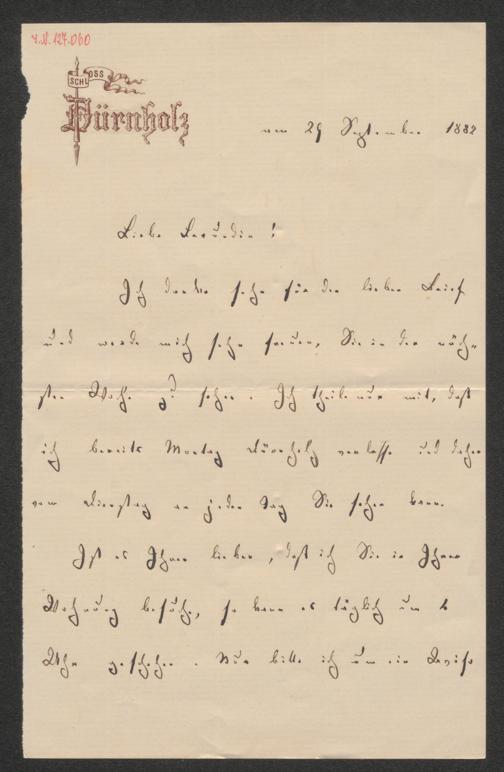 I.N. 127.060
SCHLOSS
Dürnholz
am 29 September 1882
Liebe Freundin!
Ich danke sehr für den lieben Brief
und werde mich sehr freuen, Sie in der näch-
sten Woche zu sehen. Ich theile nur mit, daß
ich bereits Montag Dürnholz verlasse und daher
vom Dienstag an jeden Tag Sie sehen kann.
Ist es Ihnen lieber, daß ich Sie in Ihrer
Wohnung besuche, so kann es täglich um 2
Uhr geschehen. Nur bitte ich um ein Avis